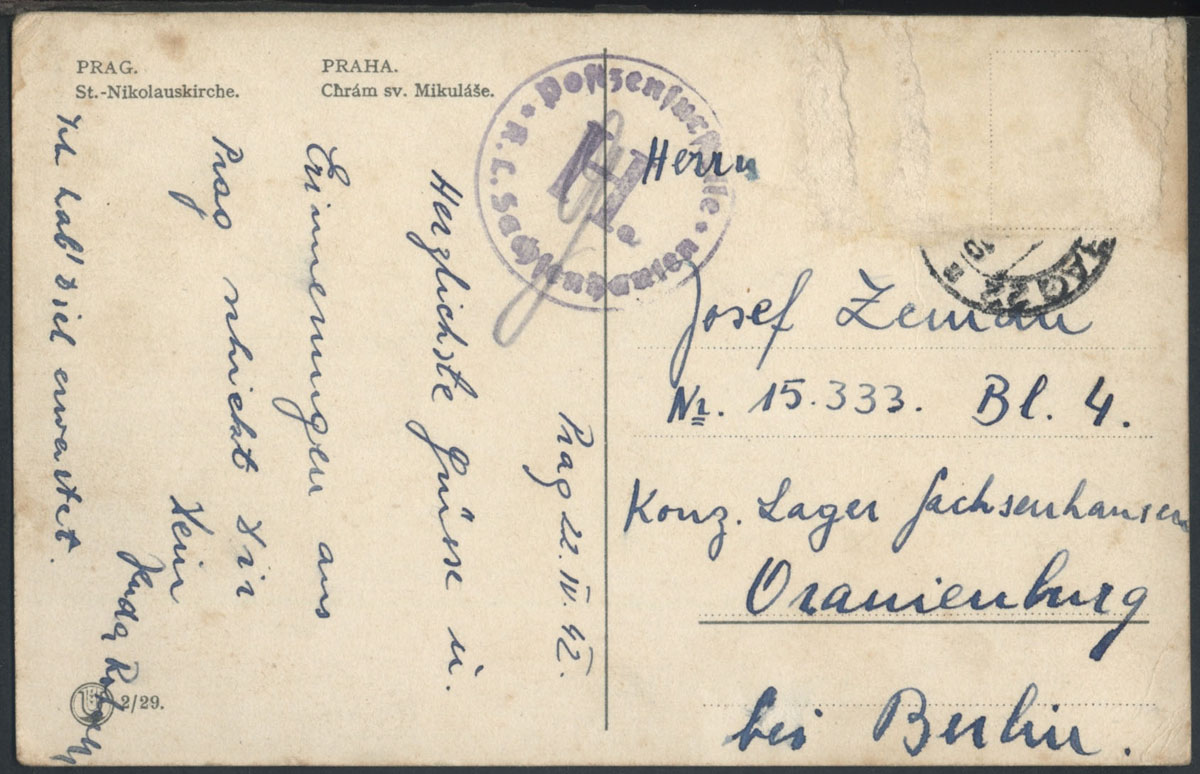 PRAG.
St.-Nikolauskirche.
PRAHA.
Chrám sv. Mikuláše.
Postzensurstelle
K. L. Sachsenhausen
Prag 22.IV.42.
Herzlichste Grüsse u.
Erinnerungen aus
Prag schickt Dir
Dein
Ich hab' Diel erwartet.
2/29.
Herrn
Josef Zeman
Nr. 15.333. Bl. 4.
Konz. Lager Sachsenhausen
Oranienburg
bei Berlin.